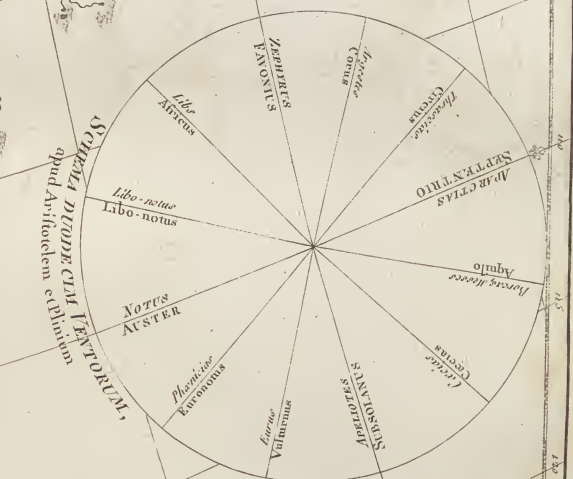 SCHEMA DUODECIM VENTORUM,
apud Aristotelem et Plinium
ZEPHYRUS
FAVONIUS
Argestes
Corus
Thrascias
Circius
APARCTIAS
SEPTENTRIO
Aquilo
Cæcias
Cæcias
APELIOTES
SUBSOLANUS
Eurus
Vulturnus
Phœnicias
Euronotus
NOTUS
AUSTER
Libo-notus
Libo-notus
Libs
Africus